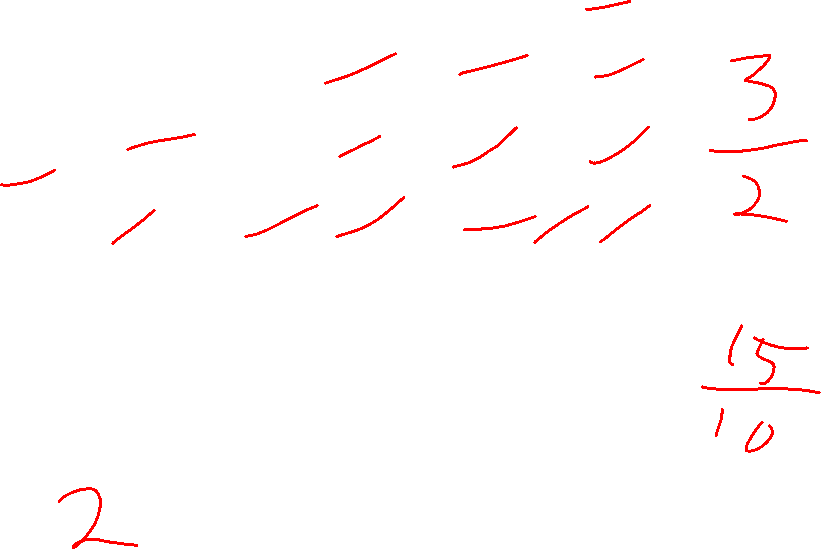 3
2
15
10
2